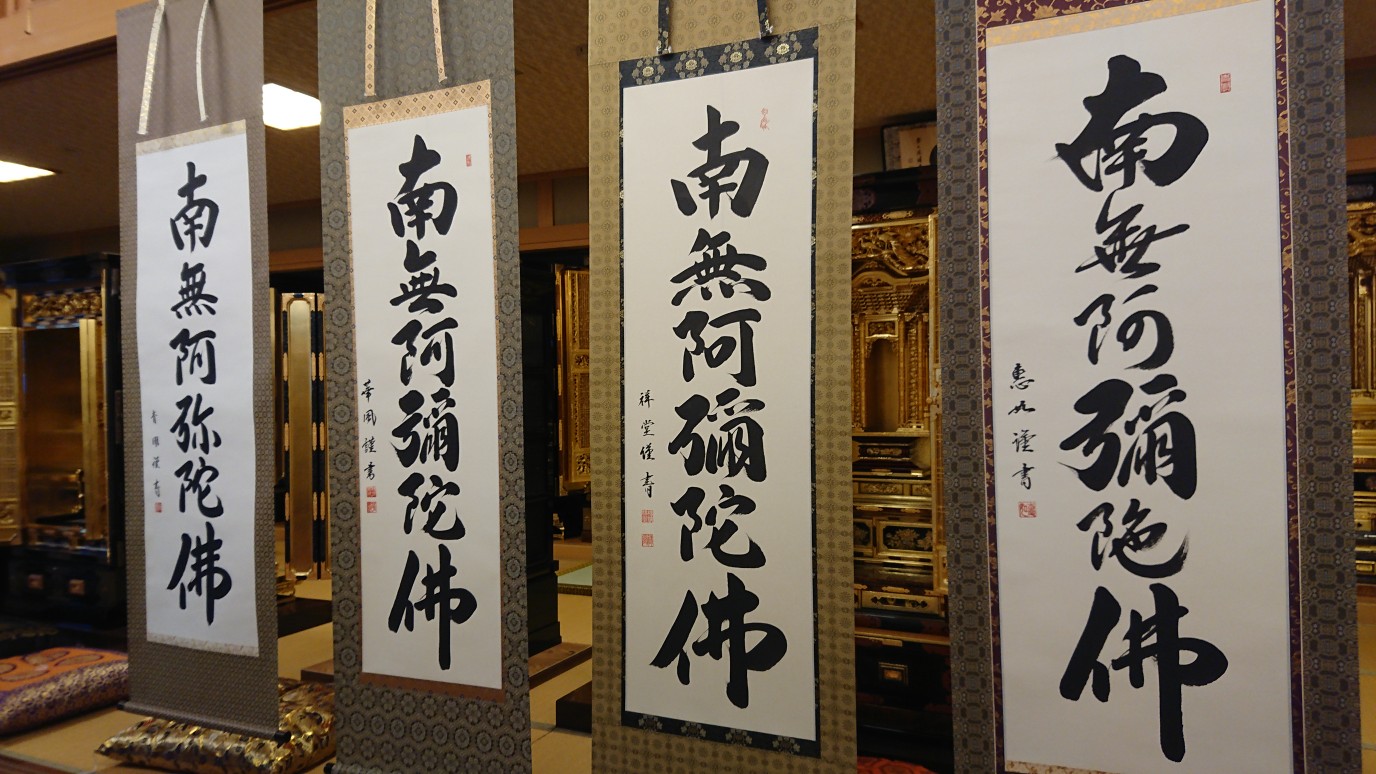 南無阿弥陀佛
南無阿彌陀佛
華風謹書
南無阿彌陀佛
祥堂谨書
南無阿彌陀佛
恵如謹書